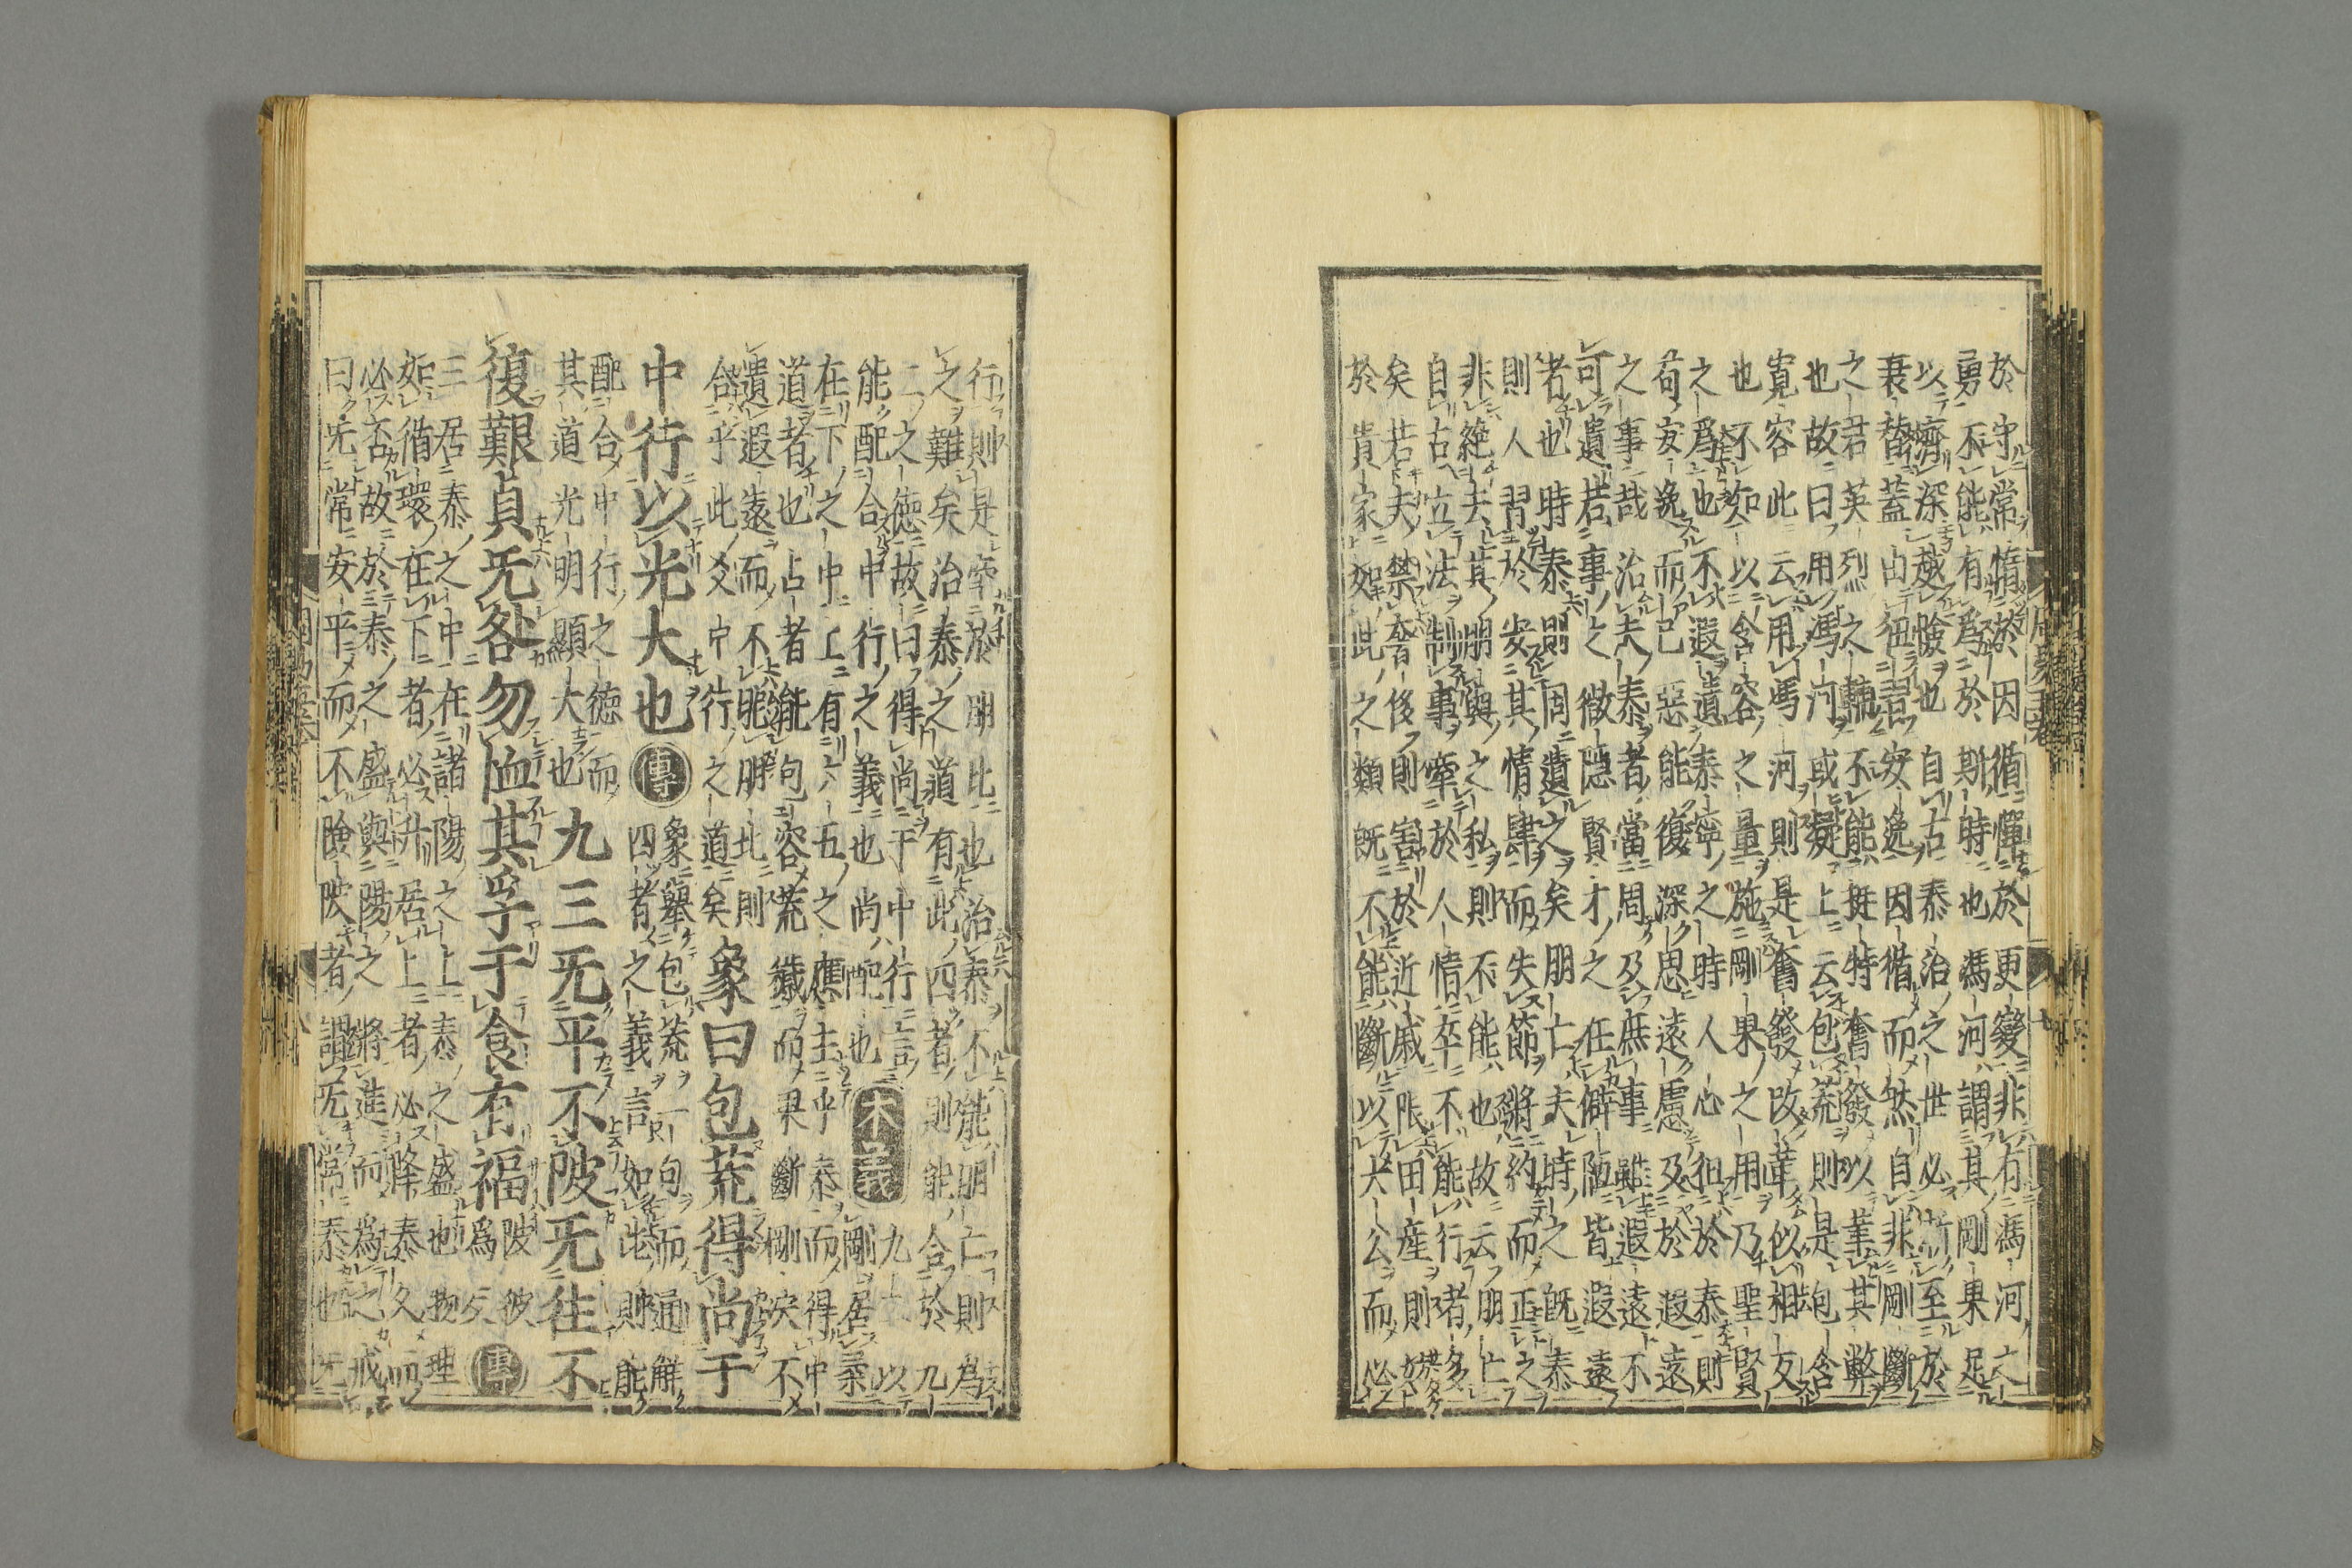 於守常惰於因循憚於更變非有馮河之
勇不能有爲於斯時也馮河謂其剛果足
以濟深越險也自古泰治之世必漸至於
衰替蓋由狃習安逸因循而然自非剛斷
之君英烈之輔不能挺特奮發以革其弊
也故曰用馮河或疑上云包荒則是包含
寛容此云用馮河則是奮發改革似相反
也不知以含容之量施剛果之用乃聖賢
之爲也不遐遺泰寧之時人心狃於泰則
苟安逸而已惡能復深思遠慮及於遐遠
之事哉治夫泰者當周及庶事雖遐遠不
可遺若事之微隠賢才之在僻陋皆遐遠
者也時泰則固遺之矣朋亡夫時之既泰
則人習於安其情肆而失節將約而正之
非絶去其朋與之私則不能也故云朋亡
自古立法制事牽於人情卒不能行者多
矣若夫禁奢侈則害於近戚限田産則妨
於貴家如此之類既不能斷以大公而必
行則是牽於朋比也治泰不能朋亡則爲
之難矣治泰之道有此四者則能合於九
二之徳故曰得尚于中行言
能配合中行之義也尚配也 本義 九以剛居柔
在下之中上有六五之應主乎泰而得中
道者也占者能包容荒穢而果斷剛決不
遺遐遠而不昵朋比則
合乎此爻中行之道矣 象曰包荒得尚于
中行以光大也 傳 象舉包荒一句而通解四者之義言如此則能
配合中行之徳而其道光明顯大也 九三无平不陂无往不
復艱貞无咎勿恤其孚于食有福 陂彼爲反 傳
三居泰之中在諸陽之上泰之盛也物理
如循環在下者必升居上者必降泰久而
必否故於泰之盛與陽之將進而爲之戒
曰无常安平而不險陂者謂无常泰也无